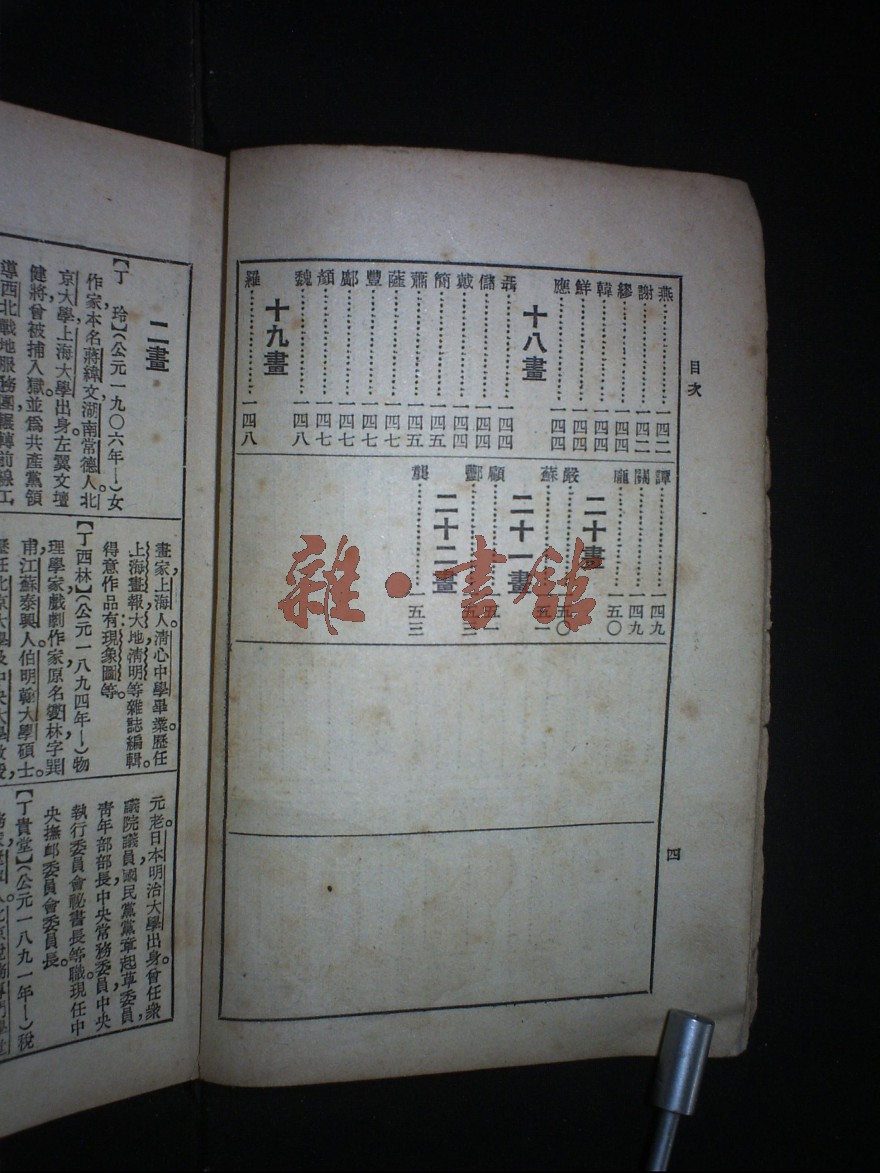 目次
燕⋯⋯一四二
謝⋯⋯一四二
繆⋯⋯一四四
韓⋯⋯一四四
鮮⋯⋯一四四
應⋯⋯一四四
十八畫
聶⋯⋯一四四
儲⋯⋯一四四
戴⋯⋯一四四
簡⋯⋯一四五
蕭⋯⋯一四五
薩⋯⋯一四七
豐⋯⋯一四七
鄺⋯⋯一四七
顏⋯⋯一四七
魏⋯⋯一四八
十九畫
羅⋯⋯一四八
譚⋯⋯一四九
關⋯⋯一四九
龐⋯⋯一五〇
二十畫
嚴⋯⋯一五〇
蘇⋯⋯一五一
二十一畫
顧⋯⋯一五二
酆⋯⋯一五三
二十二畫
龔⋯⋯一五三
四
雜·書館
二畫
【丁 玲】(公元一九〇六年—)女
作家,本名蔣緯文,湖南常德人。北
京大學,上海大學出身。左翼文壇
健將。曾被捕入獄,並爲共產黨領
導西北戰地服務團,輾轉前線工
畫家,上海人。清心中學畢業。歷任
上海畫報,大地,清明等雜誌編輯。
得意作品有現象圖等。
【丁西林】(公元一八九四年—)物
理學家,戲劇作家。原名燮林,字巽
甫,江蘇泰興人。伯明翰大學碩士。
歷任北京大學及中央大學教授,
元老。日本明治大學出身。曾任衆
議院議員,國民黨黨章起草委員,
青年部部長,中央常務委員,中央
執行委員會祕書長等職。現任中
央撫卹委員會委員長。
【丁貴堂】(公元一八九一年—)稅